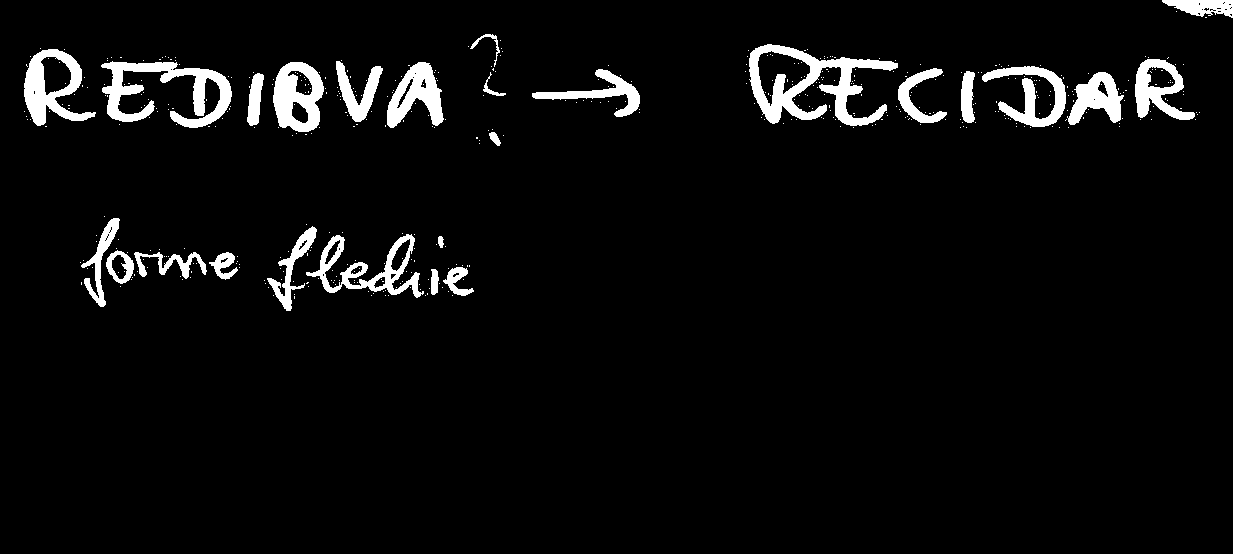 REDIBVA? → RECIDAR
forme flechie